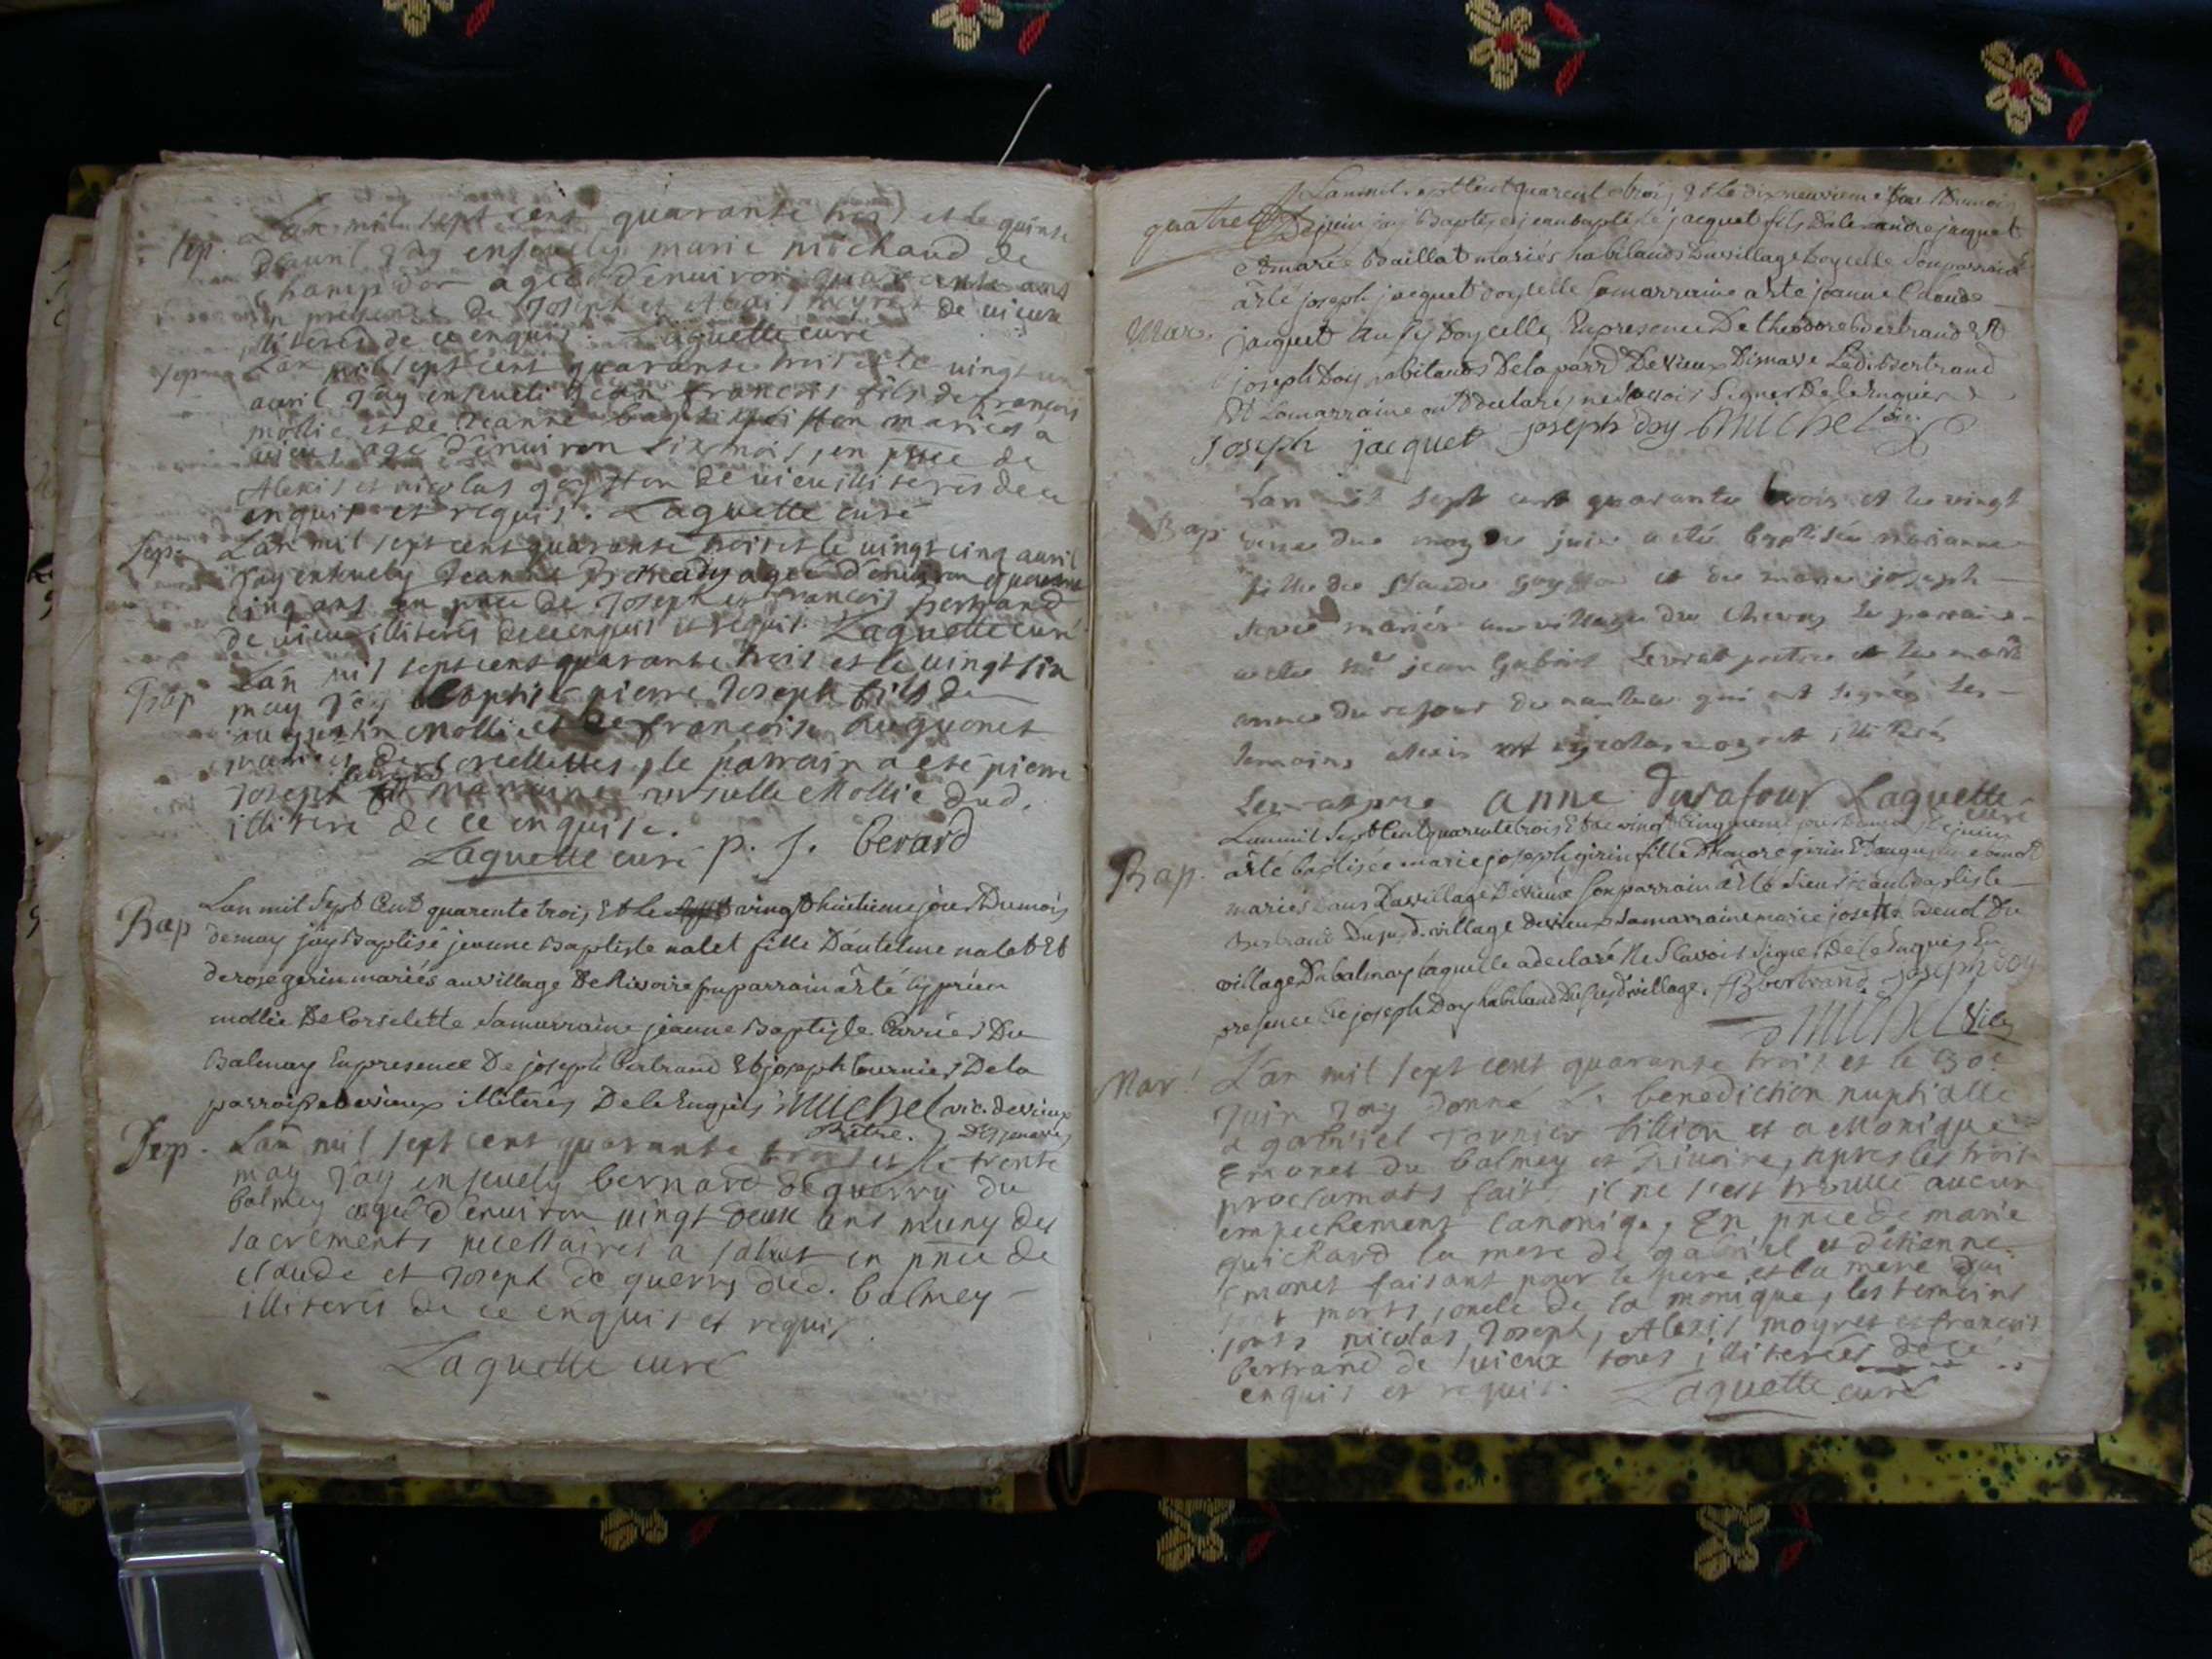 Sep. Lan mil sept cent quarante trois et le quinse
d'auril J'ay enseuely marie michaud de
Champ dor agée denuiron quarante ans
en présence de Joseph et Alexis moyret de uieux
illiterés de ce enquis. Laguette curé
Sep. Lan mil sept cent quarante trois et le uingt un
auril J'ay enseueli Jean francois fils de francois
mollie et de Jeanne baptiste goytton mariés a
uieu, agé d'enuiron six mois, en pnce de
Alexis et nicolas goytton de uieu illiteres de ce
enquis et requis. Laguette curé
Sep. Lan mil sept cent quarante trois et le uingt cinq auril
J'ay enseuely Jeanne agée d'enuiron quarante
cinq ans en pnce de Joseph et francois bertrand
de uieu illiterés de ce enquis et requis. Laguette curé
Bap Lan mil sept cent quarante trois et le uingt six
may J'ay Baptisé pierre Joseph fils de
augustin Mollie et de francoise huguonet
mariés de Corcellettes, le parrain a esté pierre
Joseph berard marraine ursulle Mollie dud.
illiteré de ce enquise.
Laguette curé p. J. berard
Bap Lan mil Sept Cent quarente trois Et le vingt huitieme jour Du mois
de may j'ay Baptisé jeanne Baptiste nalet fille D'antelme nalet Et
de rose gerin mariés au village De Rivoire son parrain a'eté Cyprien
mollie De Corselette Samarraine jeanne Baptiste Carrier Du
Balmay En presence De joseph Bertrand Et joseph tournier De la
parroisse de vieux illiterés De Ce Enquis Michel vic. de vieux
Sep. Lan mil sept cent quarante trois et le trente
may J'ay enseuely bernard deguerry du
balmey agé d'enuiron uingt deux ans muny des
sacrements necessaires a salut en pnce de
claude et Joseph de guerry dud. balmey
illiterés de ce enquis et requis.
Laguette curé
Lan mil sept Cent quarente trois, Et le dix neuvieme Jour Du mois
De juin j'ay Baptisé jean baptiste jacquet fils D'alexandre jacquet
Et marie Baillat mariés habitands Du village Doycelle Son parrain
a'eté joseph jacquet doycelle Samarraine a'eté jeanne Claude
Mar. jacquet Aussy Doycelle, En presence De theodore bertrand Et
joseph Doy habitands De la parr. De vieux Le dit Bertrand
Et La marraine ont declaré ne scavoir Signer De Ce Enquis
Joseph jacquet joseph doy Michel vic.
Bap Lan mil sept cent quarante trois et le vingt
du moy de juin a esté baptisée marianne
fille de Claude Goytton et de marie joseph
mariés au village du Chevry le parraine
a esté Sr jean Gabriel Levrat pretre et la marr.
anne du rafour de nantua qui ont signés Les
temoins alexis et nycolas moyret illiterés
Levrat pre anne Durafour Laguette curé
Bap. Lan mil Sept Cent quarente trois Et le vingt Cinquieme jour
a'eté baptisée marie joseph girin fille D'honoré girin Et
mariés Dans Le village De vieux Son parrain a'eté Sieur jean baptiste
Bertrand Du susd. village De vieux Samarraine marie josette Du
village Du balmay laquelle a declaré Ne Scavoir Signer De Ce Enquis En
presence De joseph Doy habitand Du susd village. JBbertrand joseph doy
Michel vic.
Mar. L'an mil sept cent quarante trois et le 30e
Juin J'ay donné la benediction nuptialle
a gabriel tournier billion et a Monique
Emonet du balmey et Riuoire, apres les trois
proclamats fait il ne s'est trouué aucun
empechement canonique, En pnce de marie
guichard la mere de gabriel et d'etienne
Emonet faisant pour le pere et la mere qui
sont morts, oncle de la monique, les temoins
sonts nicolas, Joseph, Alexis moyret et francois
bertrand de uieux tous illiterées de ce
enquis et requis. Laguette curé